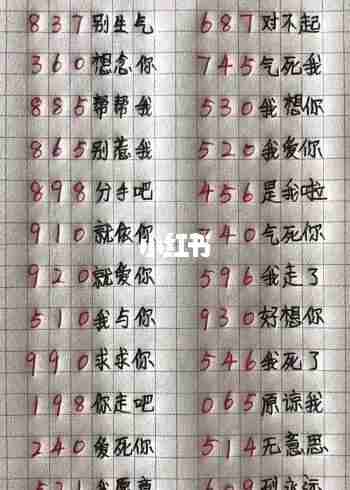 837别生气 687对不起
360想念你 745气死我
885帮帮我 530我想你
865别惹我 520我爱你
898分手吧 456是我啦
910就依你 740气死你
920就爱你 596我走了
小红书
510我与你 930好想你
990求求你 546我死了
198你走吧 065原谅我
240爱死你 514无意思